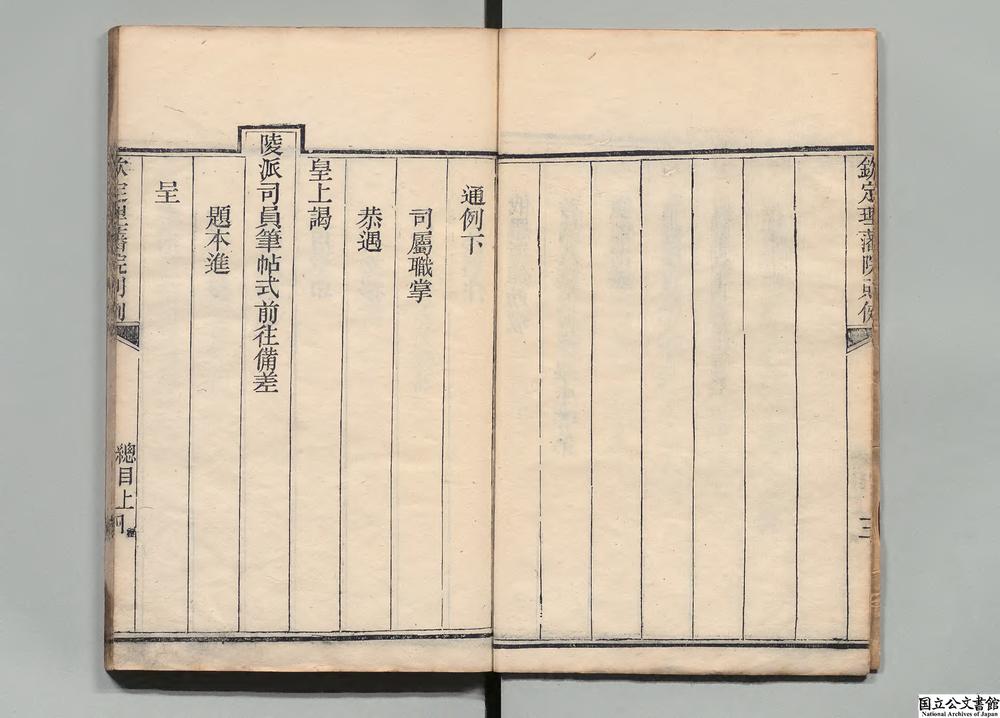 欽定理藩院則例
三
通例下
司屬職掌
恭遇
皇上謁
陵派司員筆帖式前往備差
題本進
呈
欽定理藩院則例
總目上
国立公文書館
National Archives of Japan